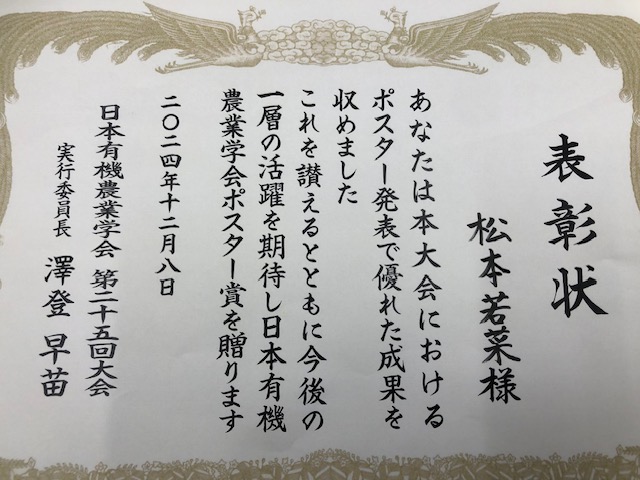 表彰状
松本若菜様
あなたは本大会における
ポスター発表で優れた成果を
収めました
これを讃えるとともに今後の
一層の活躍を期待し日本有機
農業学会ポスター賞を贈ります
二〇二四年十二月八日
日本有機農業学会 第二十五回大会
実行委員長 澤登 早苗